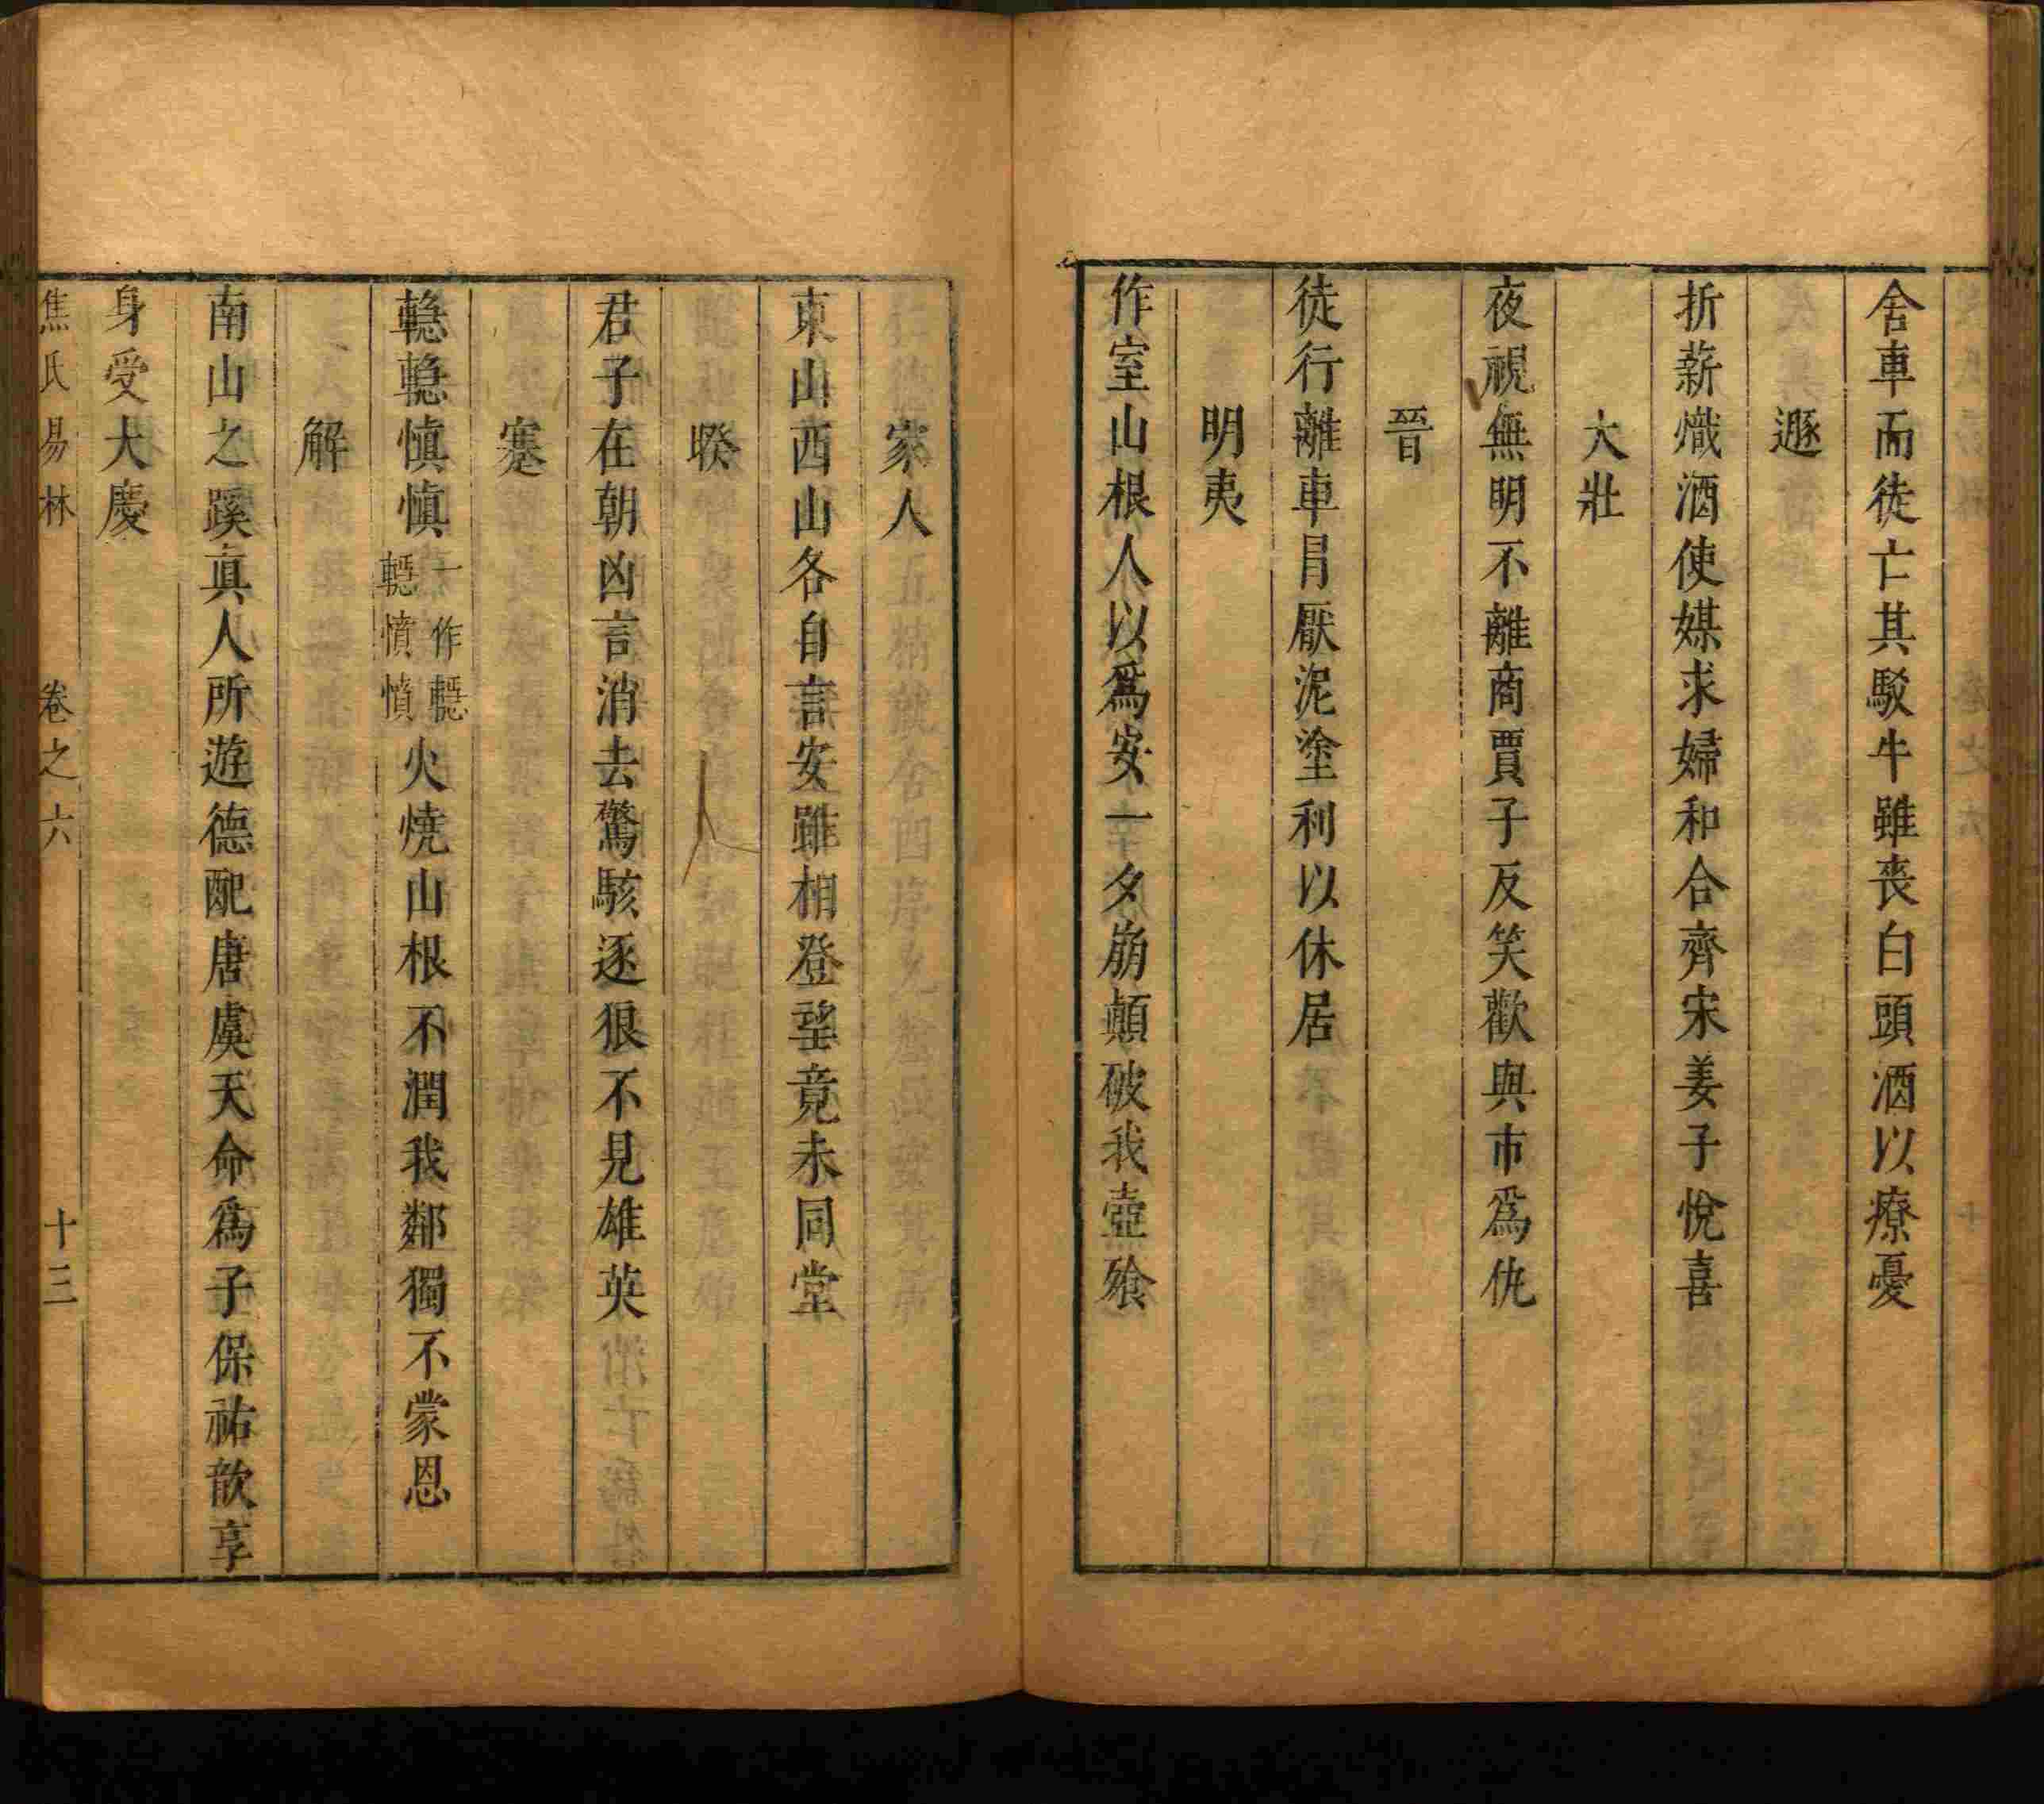 舍車而徒亡其駁牛雖喪白頭酒以療憂
遯
折薪熾酒使媒求婦和合齊宋姜子悅喜
大壯
夜視無明不離商賈子反笑歡與市爲仇
晉
徒行離車冒厭泥塗利以休居
明夷
作室山根人以爲安一夕崩顛破我壺飱
家人
東山西山各自言安雖相登望竟未同堂
睽
君子在朝凶言消去驚駭逐狼不見雄英
蹇
慎慎
一作
憤憤
火燒山根不潤我鄰獨不蒙恩
解
南山之蹊真人所遊德配唐虞天命爲子保祐歆享
身受大慶
焦氏易林 卷之六 十三